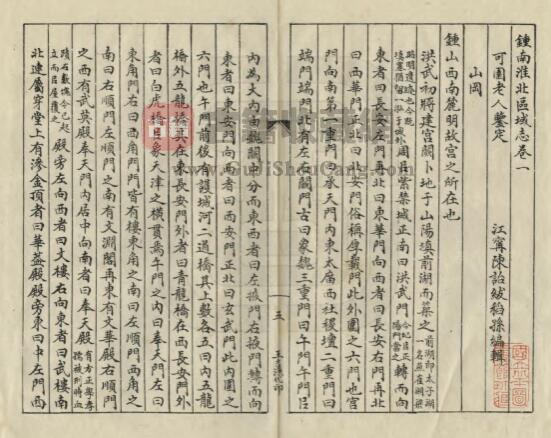 鍾南淮北區域志卷一
可園老人鑒定
江寧陳詒紱稻孫編輯
山岡
鍾山西南麓明故宮之所在也
洪武初將建宮闕卜地于山陽填前湖而築之
周曰紫禁城正南曰洪武門
轉而向
東者曰長安左門再北曰東華門向西者曰長安右門再北
曰西華門正北曰北安門俗稱厚載門此外圍之六門也宮
門向南第一重門曰承天門內東太廟西社稷壇二重門曰
端門端門北有左右闕門古曰象魏三重門曰午門午門居
內為大內由魏闕中分而東西者曰左掖門右掖門轉而向
東者曰東安門向西者曰西安門正北曰玄武門此內圍之
六門也午門前後有護城河二道橋其上數各五曰內五龍
橋外五龍橋其在東長安門外者曰青龍橋在西長安門外
者曰白虎橋以象天津之橫貫焉午門之內曰奉天門左曰
東角門右曰西角門門皆有樓東角之南曰左順門西角之
南曰右順門左順門之南有文淵閣再東有文華殿右順門
之西有武英殿奉天門內居中向南者曰奉天殿
殿旁左向西者曰文樓右向東者曰武樓南
北連屬穿堂上有滲金頂者曰華蓋殿殿旁東曰中左門西
五